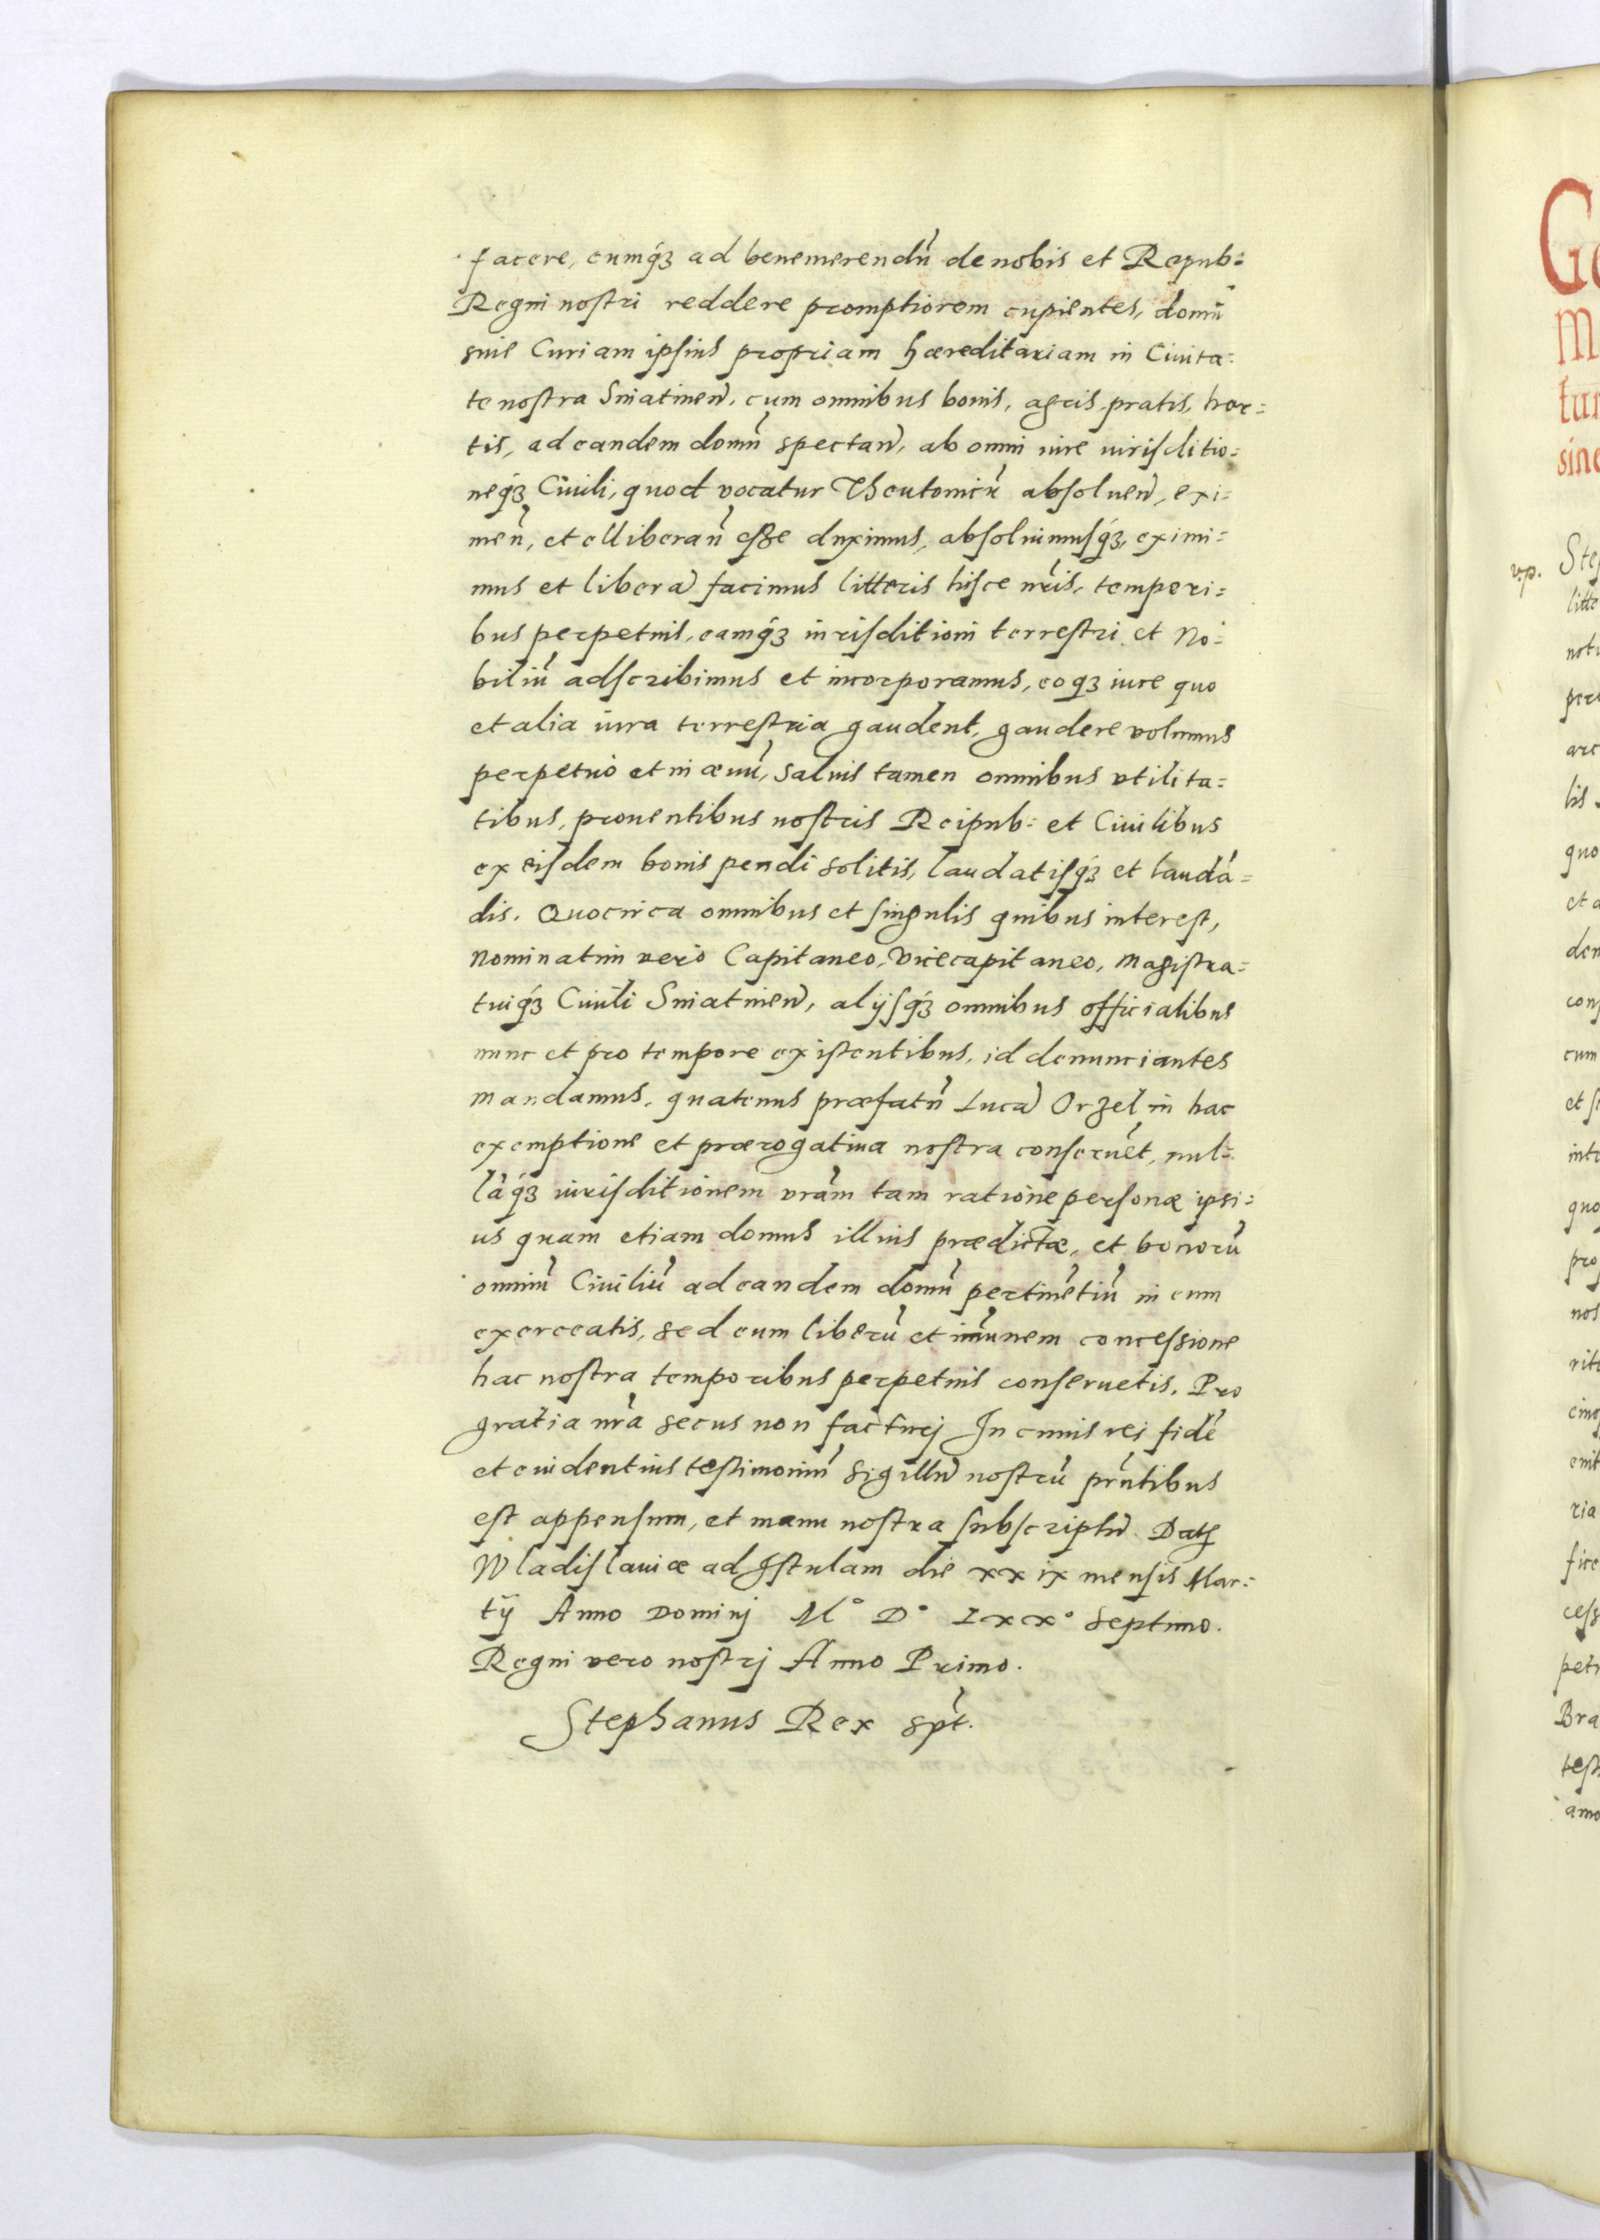 facere, eumq́ꝫ ad benemerendũ de nobis et Repub=
Regni nostri reddere promptiorem cupientes, domũ
siue Curiam ipsius propriam hæreditariam in Ciuita=
te nostra Sniatinen̄, cum omnibus bonis, agris, pratis, hor=
tis, ad eandem domũ spectan̄, ab omni iure iurisditio=
neq́ꝫ Ciuili, quod vocatur Theutonicũ absoluen̄, exi=
men̄, et elliberan̄ esse duximus, absoluimusq́ꝫ, eximi=
mus et liberã facimus litteris hisce nr̃is, tempori=
bus perpetuis, eamq́ꝫ iurisditioni terrestri et No=
biliũ adscribimus et incorporamus, eoqꝫ iure quo
et alia iura terrestria gaudent, gaudere volumus
perpetuo et in æuũ, saluis tamen omnibus vtilita=
tibus, prouentibus nostris Reipub= et Ciuilibus
ex eisdem bonis pendi solitis, laudatisq́ꝫ et laudã=
dis. Quocirca omnibus et singulis quibus interest,
nominatim vero Capitaneo, Vicecapitaneo, magistra=
tuiq́ꝫ Ciuili Sniatinen̄, alijsq́ꝫ omnibus officialibus
nunc et pro tempore existentibus, id denunciantes
mandamus, quatenus præfatũ Lucã Orzel in hac
exemptione et prærogatiua nostra conseruẽt, nul=
lãq́ꝫ iurisditionem vrãm tam ratione personæ ipsi=
us quam etiam domus illius prædictæ, et bonorũ
omniũ Ciuiliũ ad eandem domũ pertinẽtiũ in eum
exerceatis, sed eum liberũ et im̃unem concessione
hac nostra temporibus perpetuis conseruetis. Pro
gratia nr̃a secus non facturj In cuius rej fidẽ
et euidentius testimoniũ sigillũ nostrũ pr̃ntibus
est appensum, et manu nostra subscriptũ. Datꝭ
Wladislauiæ ad Istulam die xxix mensis Mar=
tij Anno Dominj M° D° Lxx° septimo.
Regni vero nostrj Anno Primo.
Stephanus Rex sp̃t.
v.p.